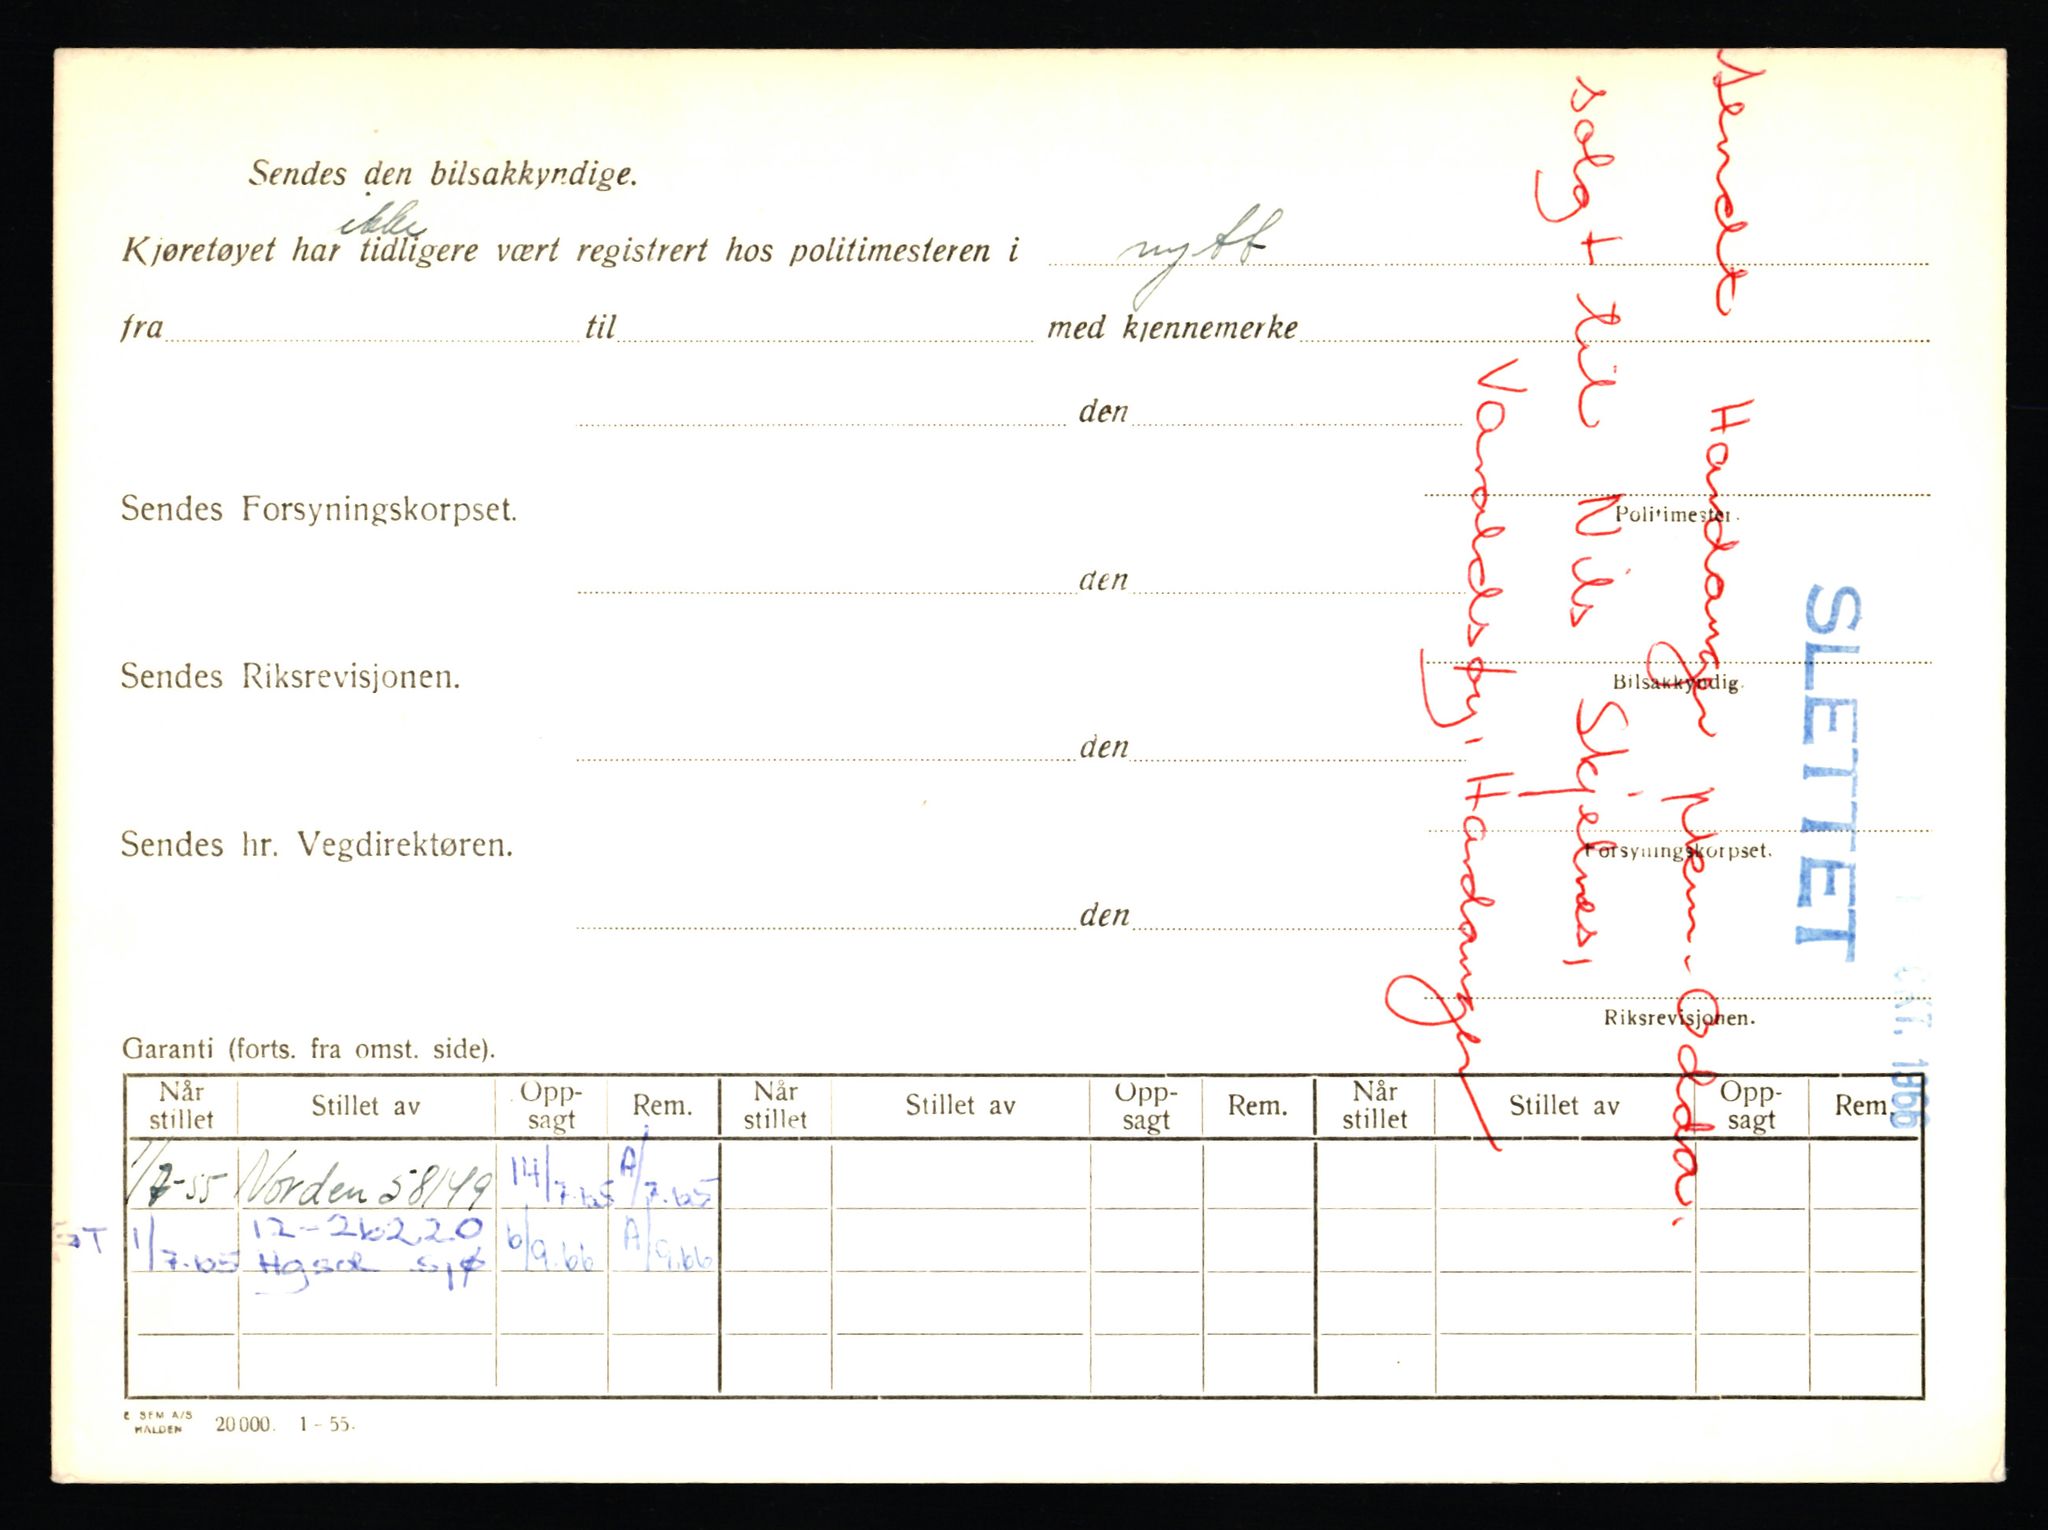 Sendes den bilsakkyndige.
ikke
Kjøretøyet har tidligere vært registrert hos politimesteren i nytt
fra til med kjennemerke
den
Politimester.
Sendes Forsyningskorpset.
den
Bilsakkyndig.
Sendes Riksrevisjonen.
den
Forsyningskorpset.
Sendes hr. Vegdirektøren.
den
Riksrevisjonen.
sendt Hardanger Odda.
solgt til Nils Skjelnes,
Varaldsøy, Hardanger
SLETTET
OKT. 1966
Garanti (forts. fra omst. side).
Når stillet Stillet av Opp-sagt Rem. Når stillet Stillet av Opp-sagt Rem. Når stillet Stillet av Opp-sagt Rem.
1/7-55 Norden 58149 14/7.65 A/7.65
1/7.65 12-26220 6/9.66 A/9.66
Hgsd sjø
SEM A/S
HALDEN
20 000. 1 - 55.